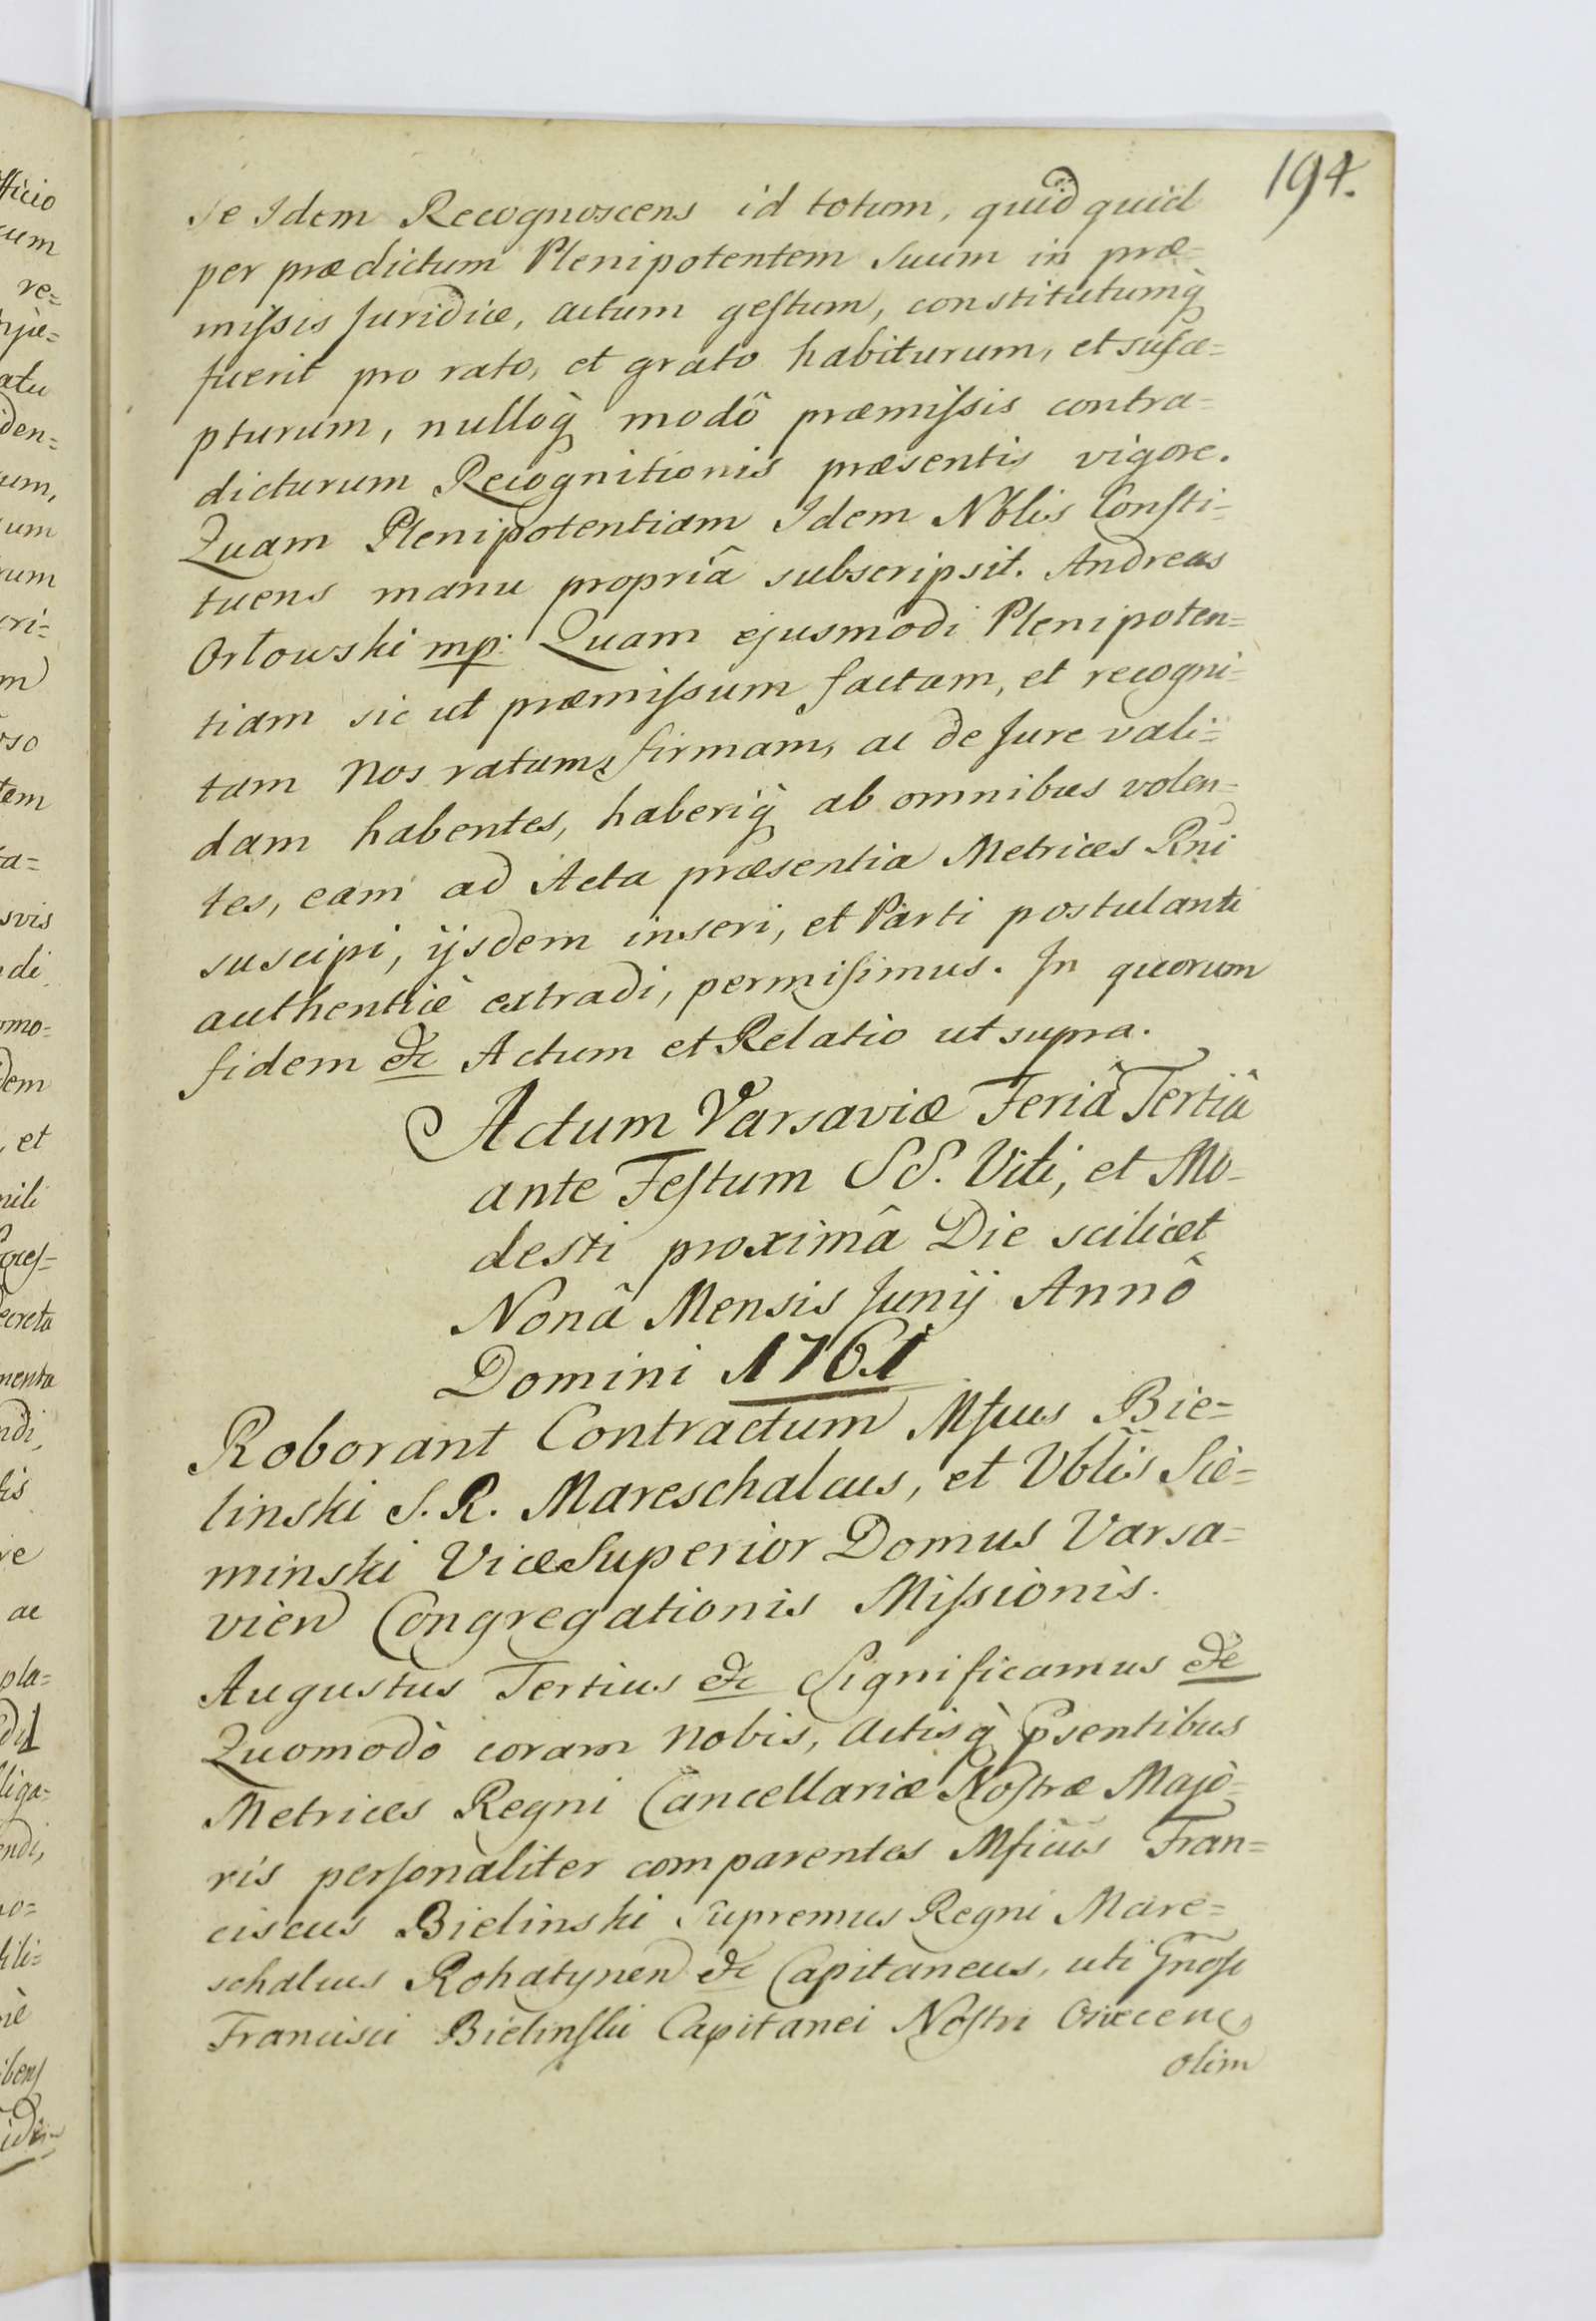 194.
se Idem Recognoscens id totum, quid quid
per prædictum Plenipotentem Suum in præ=
missis Juridice, actum gestum, constitutumq̀
fuerit pro rato, et grato habiturum, et susce=
pturum, nulloq̀ modô præmissis contra=
dicturum Recognitionis præsentis vigore.
Quam Plenipotentiam Idem Nblis Consti=
tuens manu propriâ subscripsit. Andreas
Orłowski mp. Quam ejusmodi Plenipoten=
tiam sic ut præmissum factam, et recogni=
tam Nos ratam, firmam, ac de Jure vali=
dam habentes, haberiq̀ ab omnibus volen=
tes, eam ad Acta præsentia Metrices Rni
suscipi, ijsdem inseri, et Parti postulanti
authenticè extradi, permisimus. In quorum
fidem &c Actum et Relatio ut supra.
Actum Varsaviæ Feriâ Tertiâ
ante Festum SS. Viti, et Mo-
desti proximâ Die scilicet
Nonâ Mensis Junij Annô
Domini 1761
Roborant Contractum Mfcus Bie=
linski S. R. Mareschalcus, et Vblis Sie=
minski ViceSuperior Domus Varsa=
vien Congregationis Missionis.
Augustus Tertius &c Significamus &c
Quomodò coram Nobis, Actisq̀ psentibus
Metrices Regni Cancellariæ Nostræ Majo=
ris personaliter comparentes Mficus Fran=
ciscus Bielinski Supremus Regni Mare=
schalcus Rohatynen &c Capitaneus, uti Gnosi
Francisci Bielinski Capitanei Nostri
olim
fficio
um
re=
atu
den=
um,
um
rum
cri=
m
rso
tem
ta=
svis
di
omo=
dem
, et
nili
ecreta
menta
ndi,
tis
re
ac
pla=
liga=
endi,
no=
hili=
nè